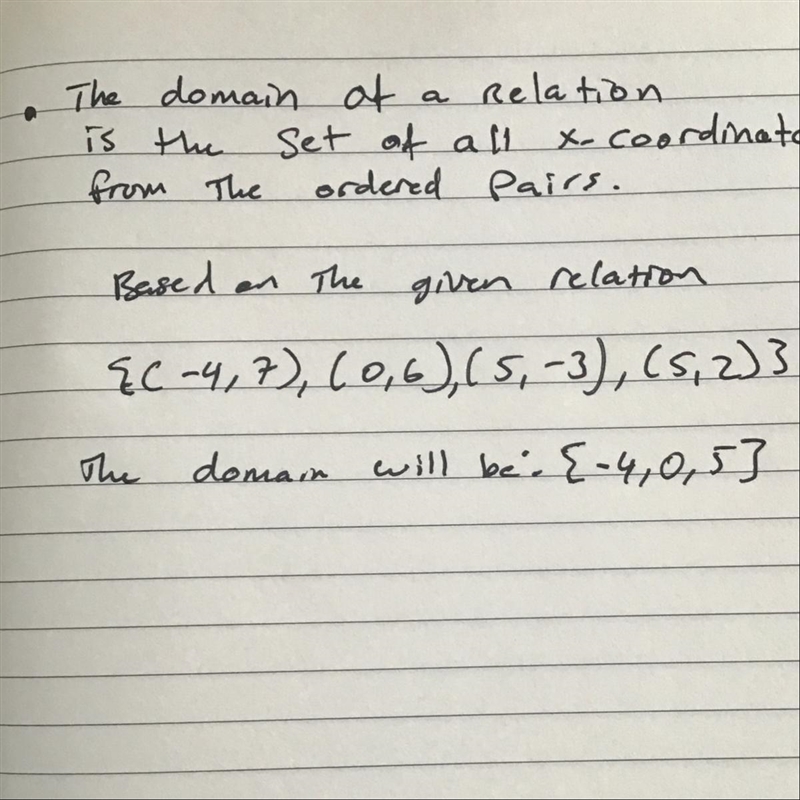 • The domain of a relation
is the set of all x-coordinate
from The ordered Pairs.
Based on The given relation
{(-4,7), (0,6),(5,-3), (5,2)}
The domain will be: {-4,0,5}